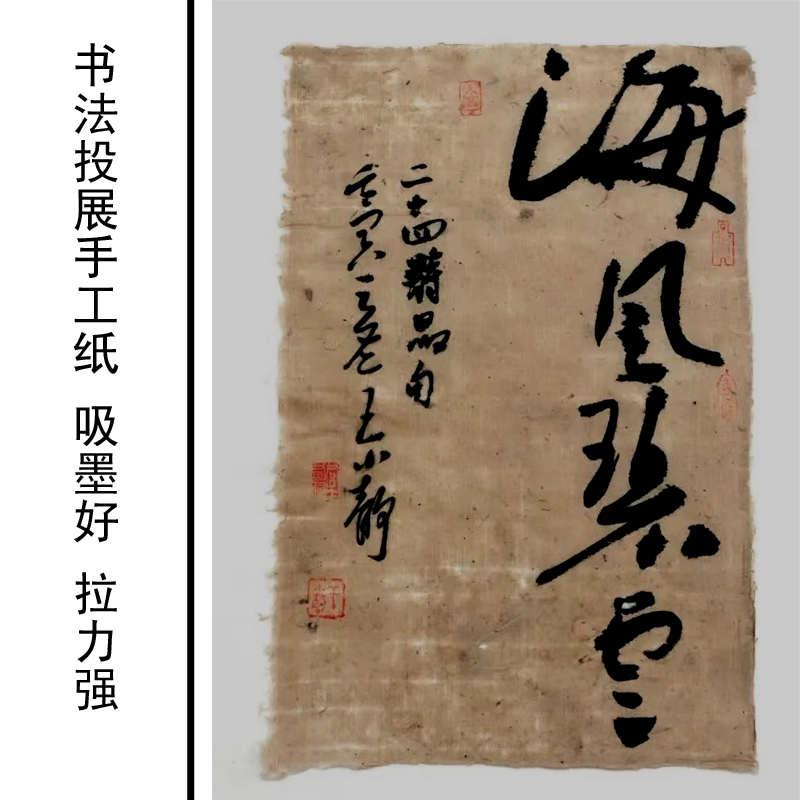 书法投展手工纸 吸墨好 拉力强
海風碧雲
二十四詩品句
壬寅 王小静